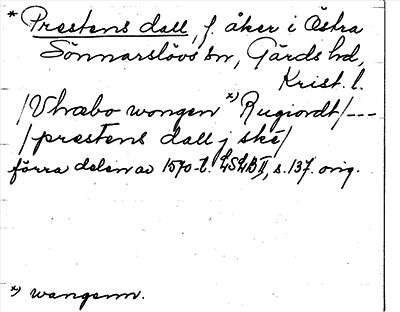 * Prestens dall, f. åker i Östra
Sönnarslövs sn, Gärds hd,
Krist. l.
/Vhræbo wongen *) Rugiordt/---
/prestens dall j ské/
förra delen av 1570-t. LSLB II, s. 137. orig.
*) wangenn.